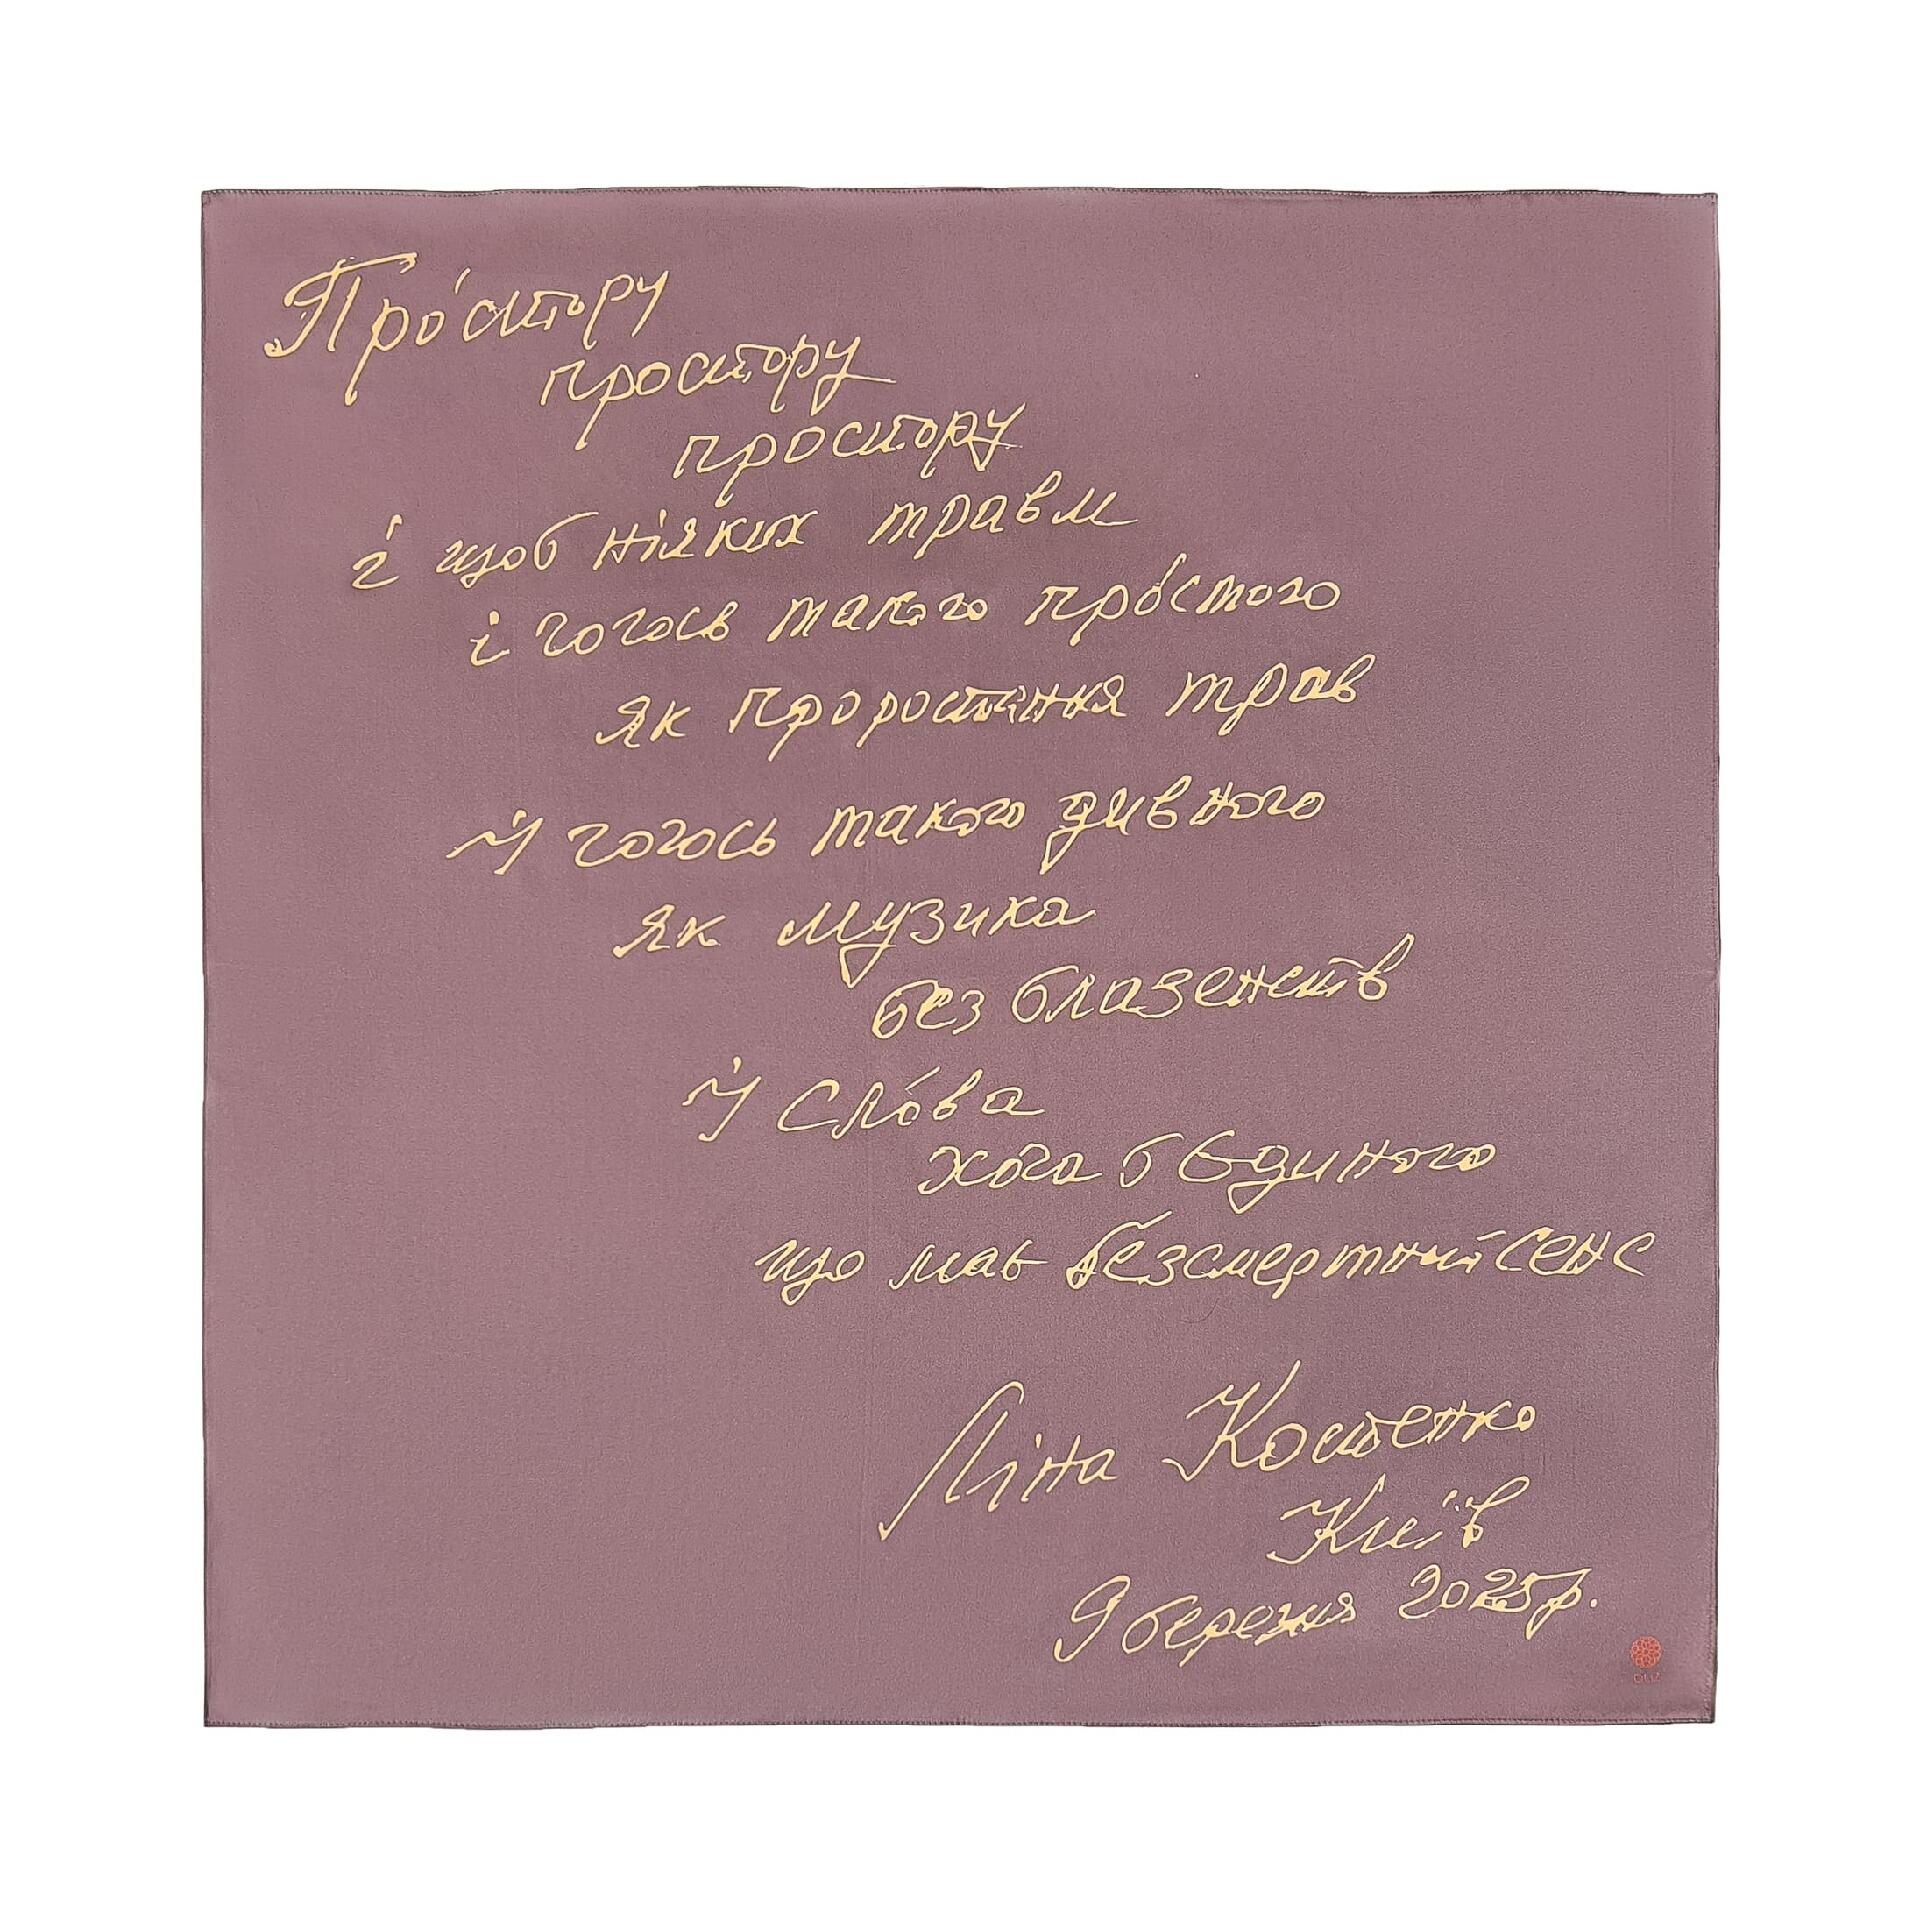 Про́стору
простору
простору
і щоб ніяких травм
і чогось такого про́стого
як проростання трав
й чогось такого дивного
як музика
без блазенств
й сло́ва
хоча б єдиного
що має безсмертний сенс
Ліна Костенко
Київ
9 березня 2025 р.